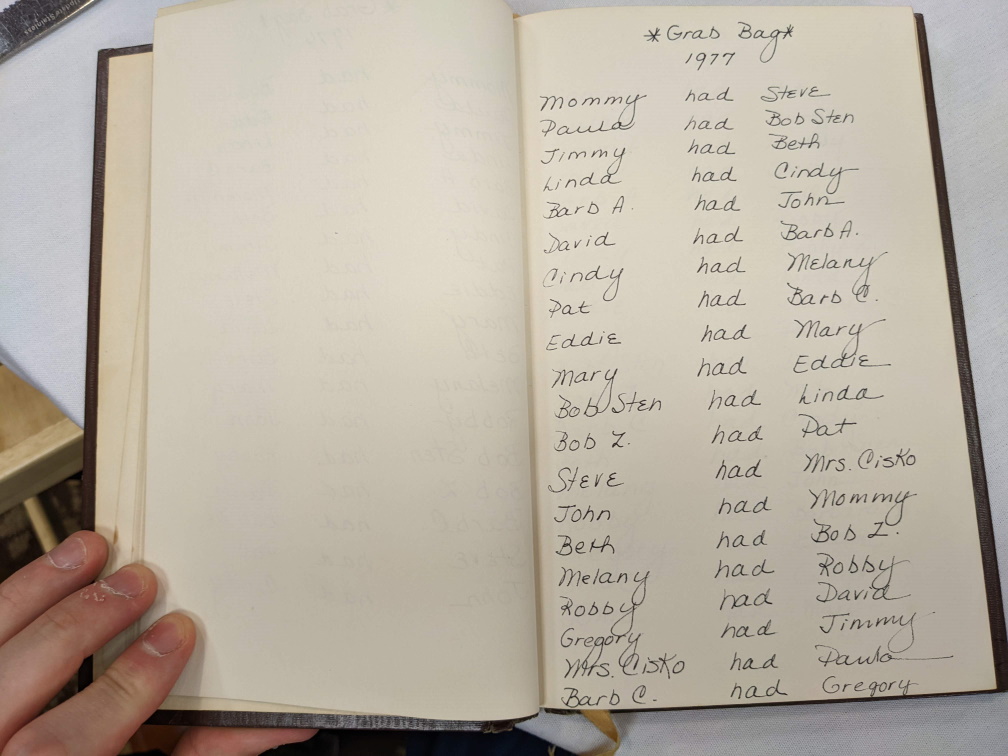 *Grab Bag*
1977
Mommy had Steve
Paula had Bob Sten
Jimmy had Beth
Linda had Cindy
Barb A. had John
David had Barb A.
Cindy had Melany
Pat had Barb C.
Eddie had Mary
Mary had Eddie
Bob Sten had Linda
Bob Z. had Pat
Steve had Mrs. Cisko
John had Mommy
Beth had Bob Z.
Melany had Robby
Robby had David
Gregory had Jimmy
Mrs. Cisko had Paula
Barb C. had Gregory